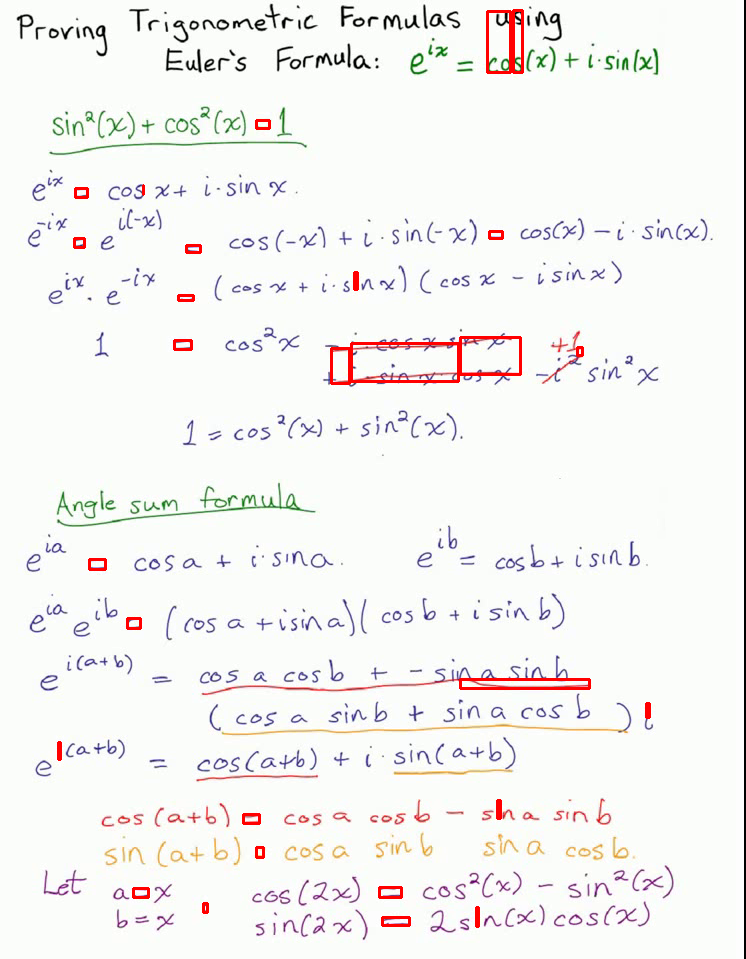 Proving Trigonometric Formulas using
Euler's Formula: e^{ix} = cos(x) + i·sin(x)
sin²(x) + cos²(x) = 1
e^{ix} = cos x + i·sin x.
e^{-ix} = e^{i(-x)} = cos(-x) + i·sin(-x) = cos(x) - i·sin(x).
e^{ix}·e^{-ix} = (cos x + i·sin x)(cos x - i sin x)
1 = cos²x - i·cos x sin x +1
+ i·sin x·cos x - i² sin²x
1 = cos²(x) + sin²(x).
Angle sum formula
e^{ia} = cos a + i·sin a. e^{ib} = cos b + i sin b.
e^{ia} e^{ib} = (cos a + i sin a)(cos b + i sin b)
e^{i(a+b)} = cos a cos b + - sin a sin b
(cos a sin b + sin a cos b) i
e^{i(a+b)} = cos(a+b) + i·sin(a+b)
cos(a+b) = cos a cos b - sin a sin b
sin(a+b) = cos a sin b sin a cos b.
Let a = x cos(2x) = cos²(x) - sin²(x)
b = x sin(2x) = 2 sin(x) cos(x)